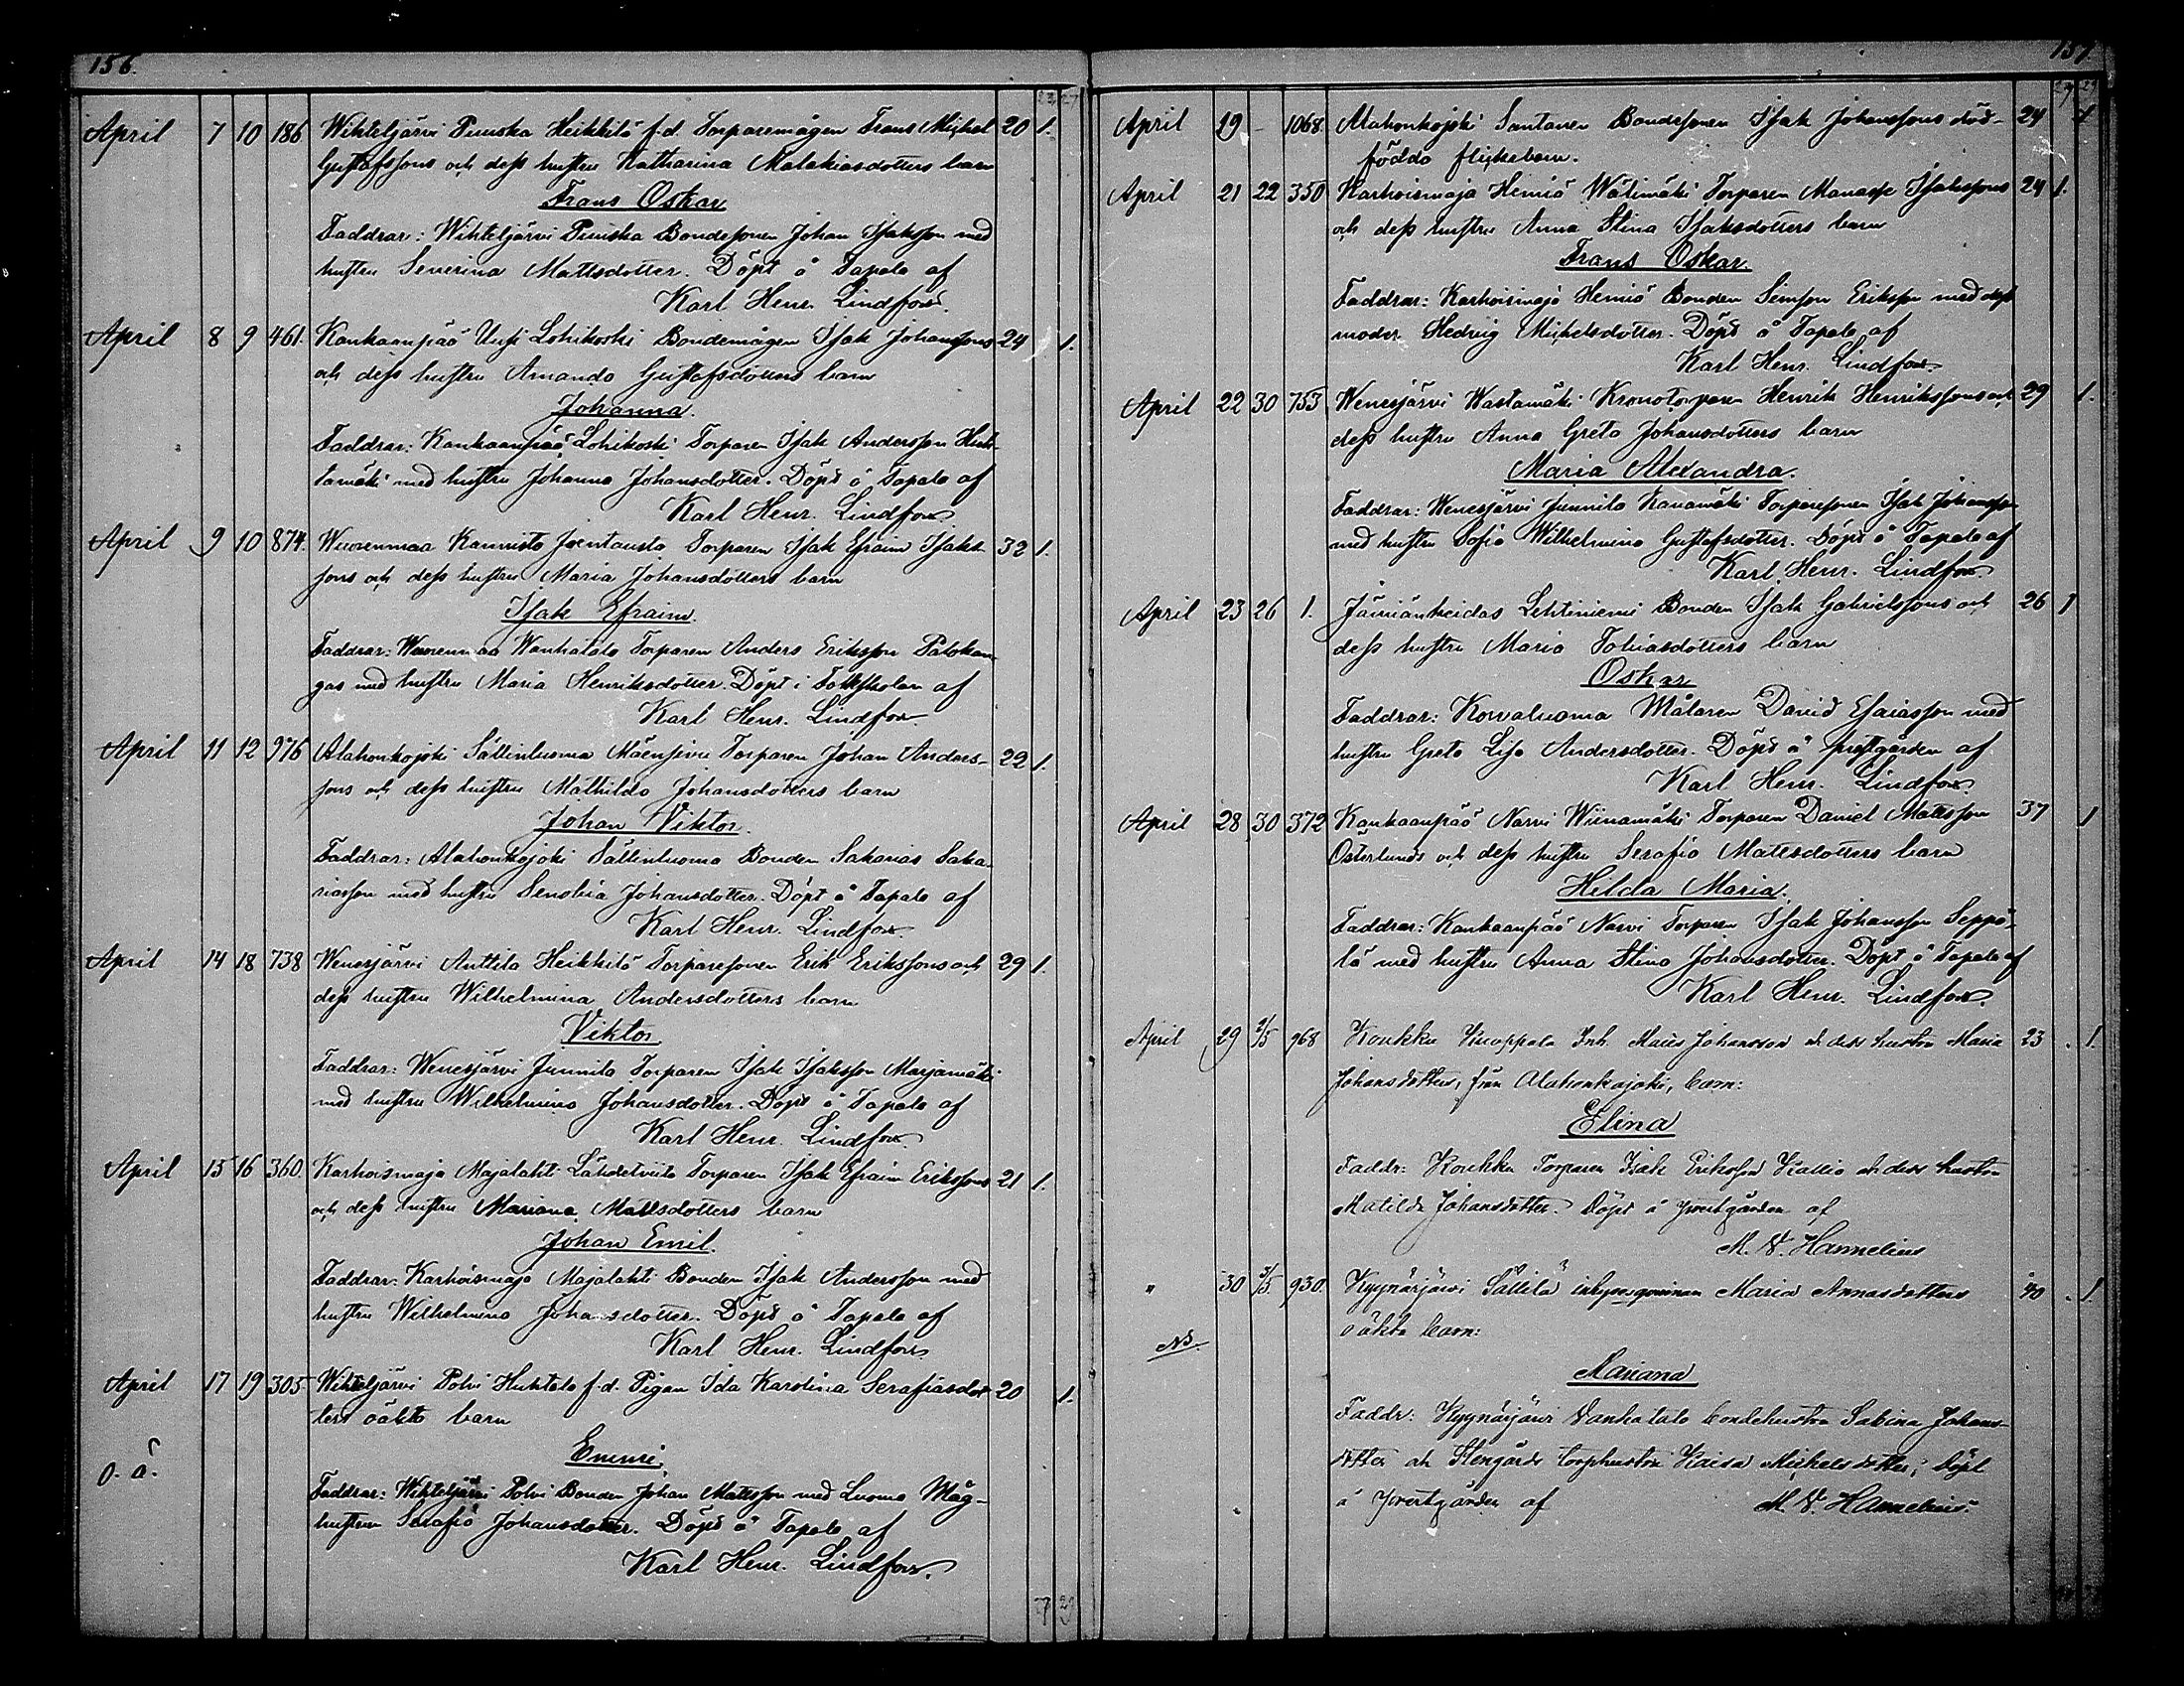 156.
April 7 10 186 Wihteljärvi Puuska Heikkilä f.d. Torparemågen Frans Michel 20 1.
Gustafssons och dess hustru Katharina Malakiasdotters barn
Frans Oskar
Faddrar: Wihteljärvi Puuska Bondesonen Johan Isaksson med
hustru Severina Mattsdotter. Döpt å Tapala af
Karl Henr. Lindfors.
April 8 9 461. Kankaanpää Uusi Lohikoski Bondemågen Isak Johanssons 24 1.
och dess hustru Amanda Gustafsdotters barn
Johanna.
Faddrar: Kankaanpää Lohikoski Torparen Isak Andersson Huh-
tamäki med hustru Johanna Johansdotter. Döpt å Tapala af
Karl Henr. Lindfors
April 9 10 874. Wuorenmaa Kannisto Joentausta Torparen Isak Efraim Isaks- 32 1.
sons och dess hustru Maria Johansdotters barn
Isak Efraim.
Faddrar: Wuorenmaa Wanhatalo Torparen Anders Eriksson Palokan-
gas med hustru Maria Henriksdotter. Döpt i Folkskolan af
Karl Henr. Lindfors
April 11 12 976 Alahonkojoki Sällinluoma Mäensivu Torparen Johan Anders- 22 1.
sons och dess hustru Mathilda Johansdotters barn
Johan Viktor.
Faddrar: Alahonkojoki Sällinluoma Bonden Sakarias Saka-
riasson med hustru Senobia Johansdotter. Döpt å Tapala af
Karl Henr. Lindfors.
April 14 18 738 Wenesjärvi Anttila Heikkilä Torparesonen Erik Erikssons och 29 1.
dess hustru Wilhelmina Andersdotters barn
Viktor
Faddrar: Wenesjärvi Junnila Torparen Isak Isaksson Marjamäki
med hustru Wilhelmina Johansdotter. Döpt å Tapala af
Karl Henr. Lindfors.
April 15 16 360. Karhoismaja Majalahti Lähdetviita Torparen Isak Efraim Erikssons 21 1.
och dess hustru Mariana Mattsdotters barn
Johan Emil.
Faddrar: Karhoismaja Majalahti Bonden Isak Andersson med
hustru Wilhelmina Johansdotter. Döpt å Tapala af
Karl Henr. Lindfors.
April 17 19 305 Wihteljärvi Polvi Huhtala f.d. Pigan Ida Karolina Serafiasdot- 20 1.
ters oäkta barn
Emmi.
o. ä.
Faddrar: Wihteljärvi Polvi Bonden Johan Mattsson med Luoma Måg-
hustrun Serafia Johansdotter. Döpt å Tapala af
Karl Henr. Lindfors.
157
April 19 - 1068. Alahonkojoki Santanen Bondesonen Isak Johanssons död- 24 1
födda flickebarn.
April 21 22 350 Karhoismaja Heiniö Wälimäki Torparen Manasse Isakssons 24 1.
och dess hustru Anna Stina Isaksdotters barn
Frans Oskar.
Faddrar: Karhoismaja Heiniö Bonden Simson Eriksson med dess
moder Hedvig Michelsdotter. Döpt å Tapala af
Karl Henr. Lindfors.
April 22 30 753 Wenesjärvi Wastamäki Kronotorparen Henrik Henrikssons och 29 1.
dess hustru Anna Greta Johansdotters barn
Maria Alexandra.
Faddrar: Wenesjärvi Junnila Kanamäki Torparesonen Isak Johansson
med hustru Sofia Wilhelmina Gustafsdotter. Döpt å Tapala af
Karl Henr. Lindfors.
April 23 26 1. Jämiänkeidas Lehtiniemi Bonden Isak Gabrielssons och 26 1
dess hustru Maria Tobiasdotters barn
Oskar
Faddrar: Kowaluoma Målaren David Esaiasson med
hustru Greta Lisa Andersdotter. Döpt å prestgården af
Karl Henr. Lindfors.
April 28 30 372 Kankaanpää Narvi Wiinamäki Torparen Daniel Mattsson 37 1
Österlunds och dess hustru Serafia Mattsdotters barn
Hilda Maria.
Faddrar: Kankaanpää Narvi Torparen Isak Johansson Seppä-
lä med hustru Anna Stina Johansdotter. Döpt å Tapala af
Karl Henr. Lindfors.
April 29 3/5 968 Koukku Knoppala Inh. Matts Johansson och dess hustru Maria 23 1.
Johansdotters, från Alahonkajoki, barn:
Elina
Faddr: Koukku Torparen Isak Eriksson Kallio och dess hustru
Matilda Johansdotter. Döpt å prestgården af
M. V. Hannelius
" 30 3/5 930. Kyynärjärvi Sällilä inhysesqvinnan Maria Annasdotters 40 1.
oäkta barn:
NB.
Mariana
Faddr: Kyynärjärvi Vanhatalo bondehustru Sabina Johans-
dotter och Stengårds torphustru Kaisa Michelsdotter; döpt
å prestgården af M. V. Hannelius.